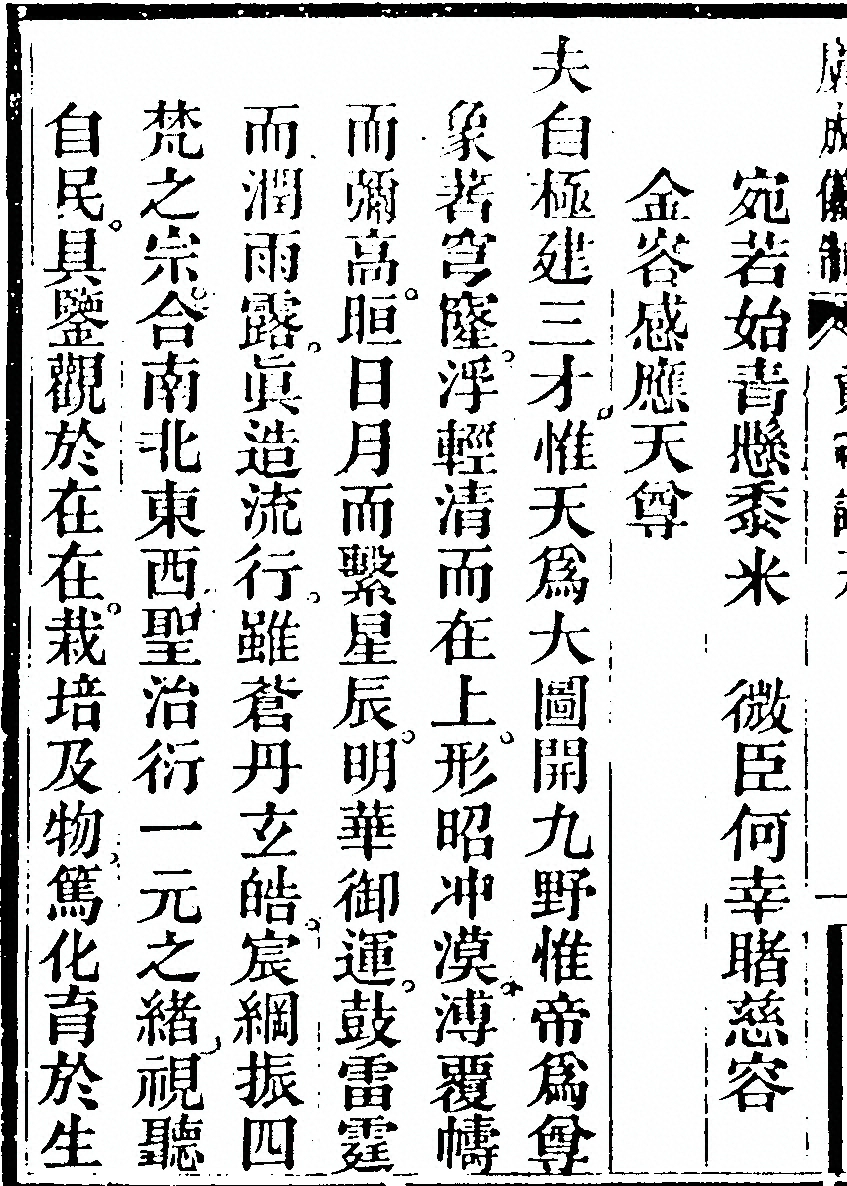 廣成儀制
宛若始青懸黍米　微臣何幸睹慈容
金容感應天尊
夫自極建三才。惟天爲大圖開九野惟帝爲尊
象著穹窿。浮輕清而在上。形昭冲漠。溥覆幬
而彌高。晅日月而繫星辰。明華御運。鼓雷霆
而潤雨露。眞造流行。雖蒼丹玄皓。宸綱振四
梵之宗。合南北東西聖治衍一元之緒視聽
自民。具鑒觀於在在。栽培及物。篤化育於生